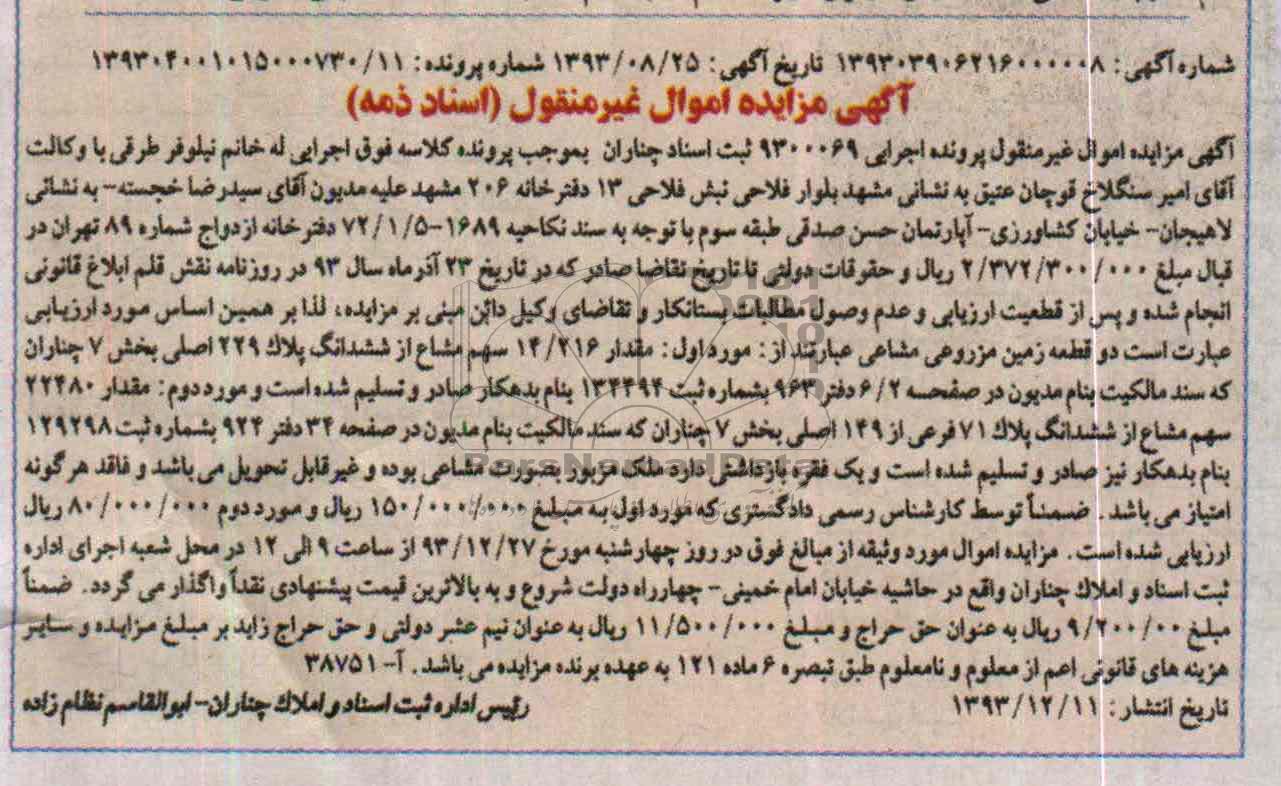 شماره آگهی: ۱۳۹۳۰۳۹۰۶۲۱۶۰۰۰۰۰۸ تاریخ آگهی: ۱۳۹۳/۰۸/۲۵ شماره پرونده: ۱۳۹۳۰۴۰۰۱۰۱۵۰۰۰۷۳۰/۱۱
آگهی مزایده اموال غیرمنقول (اسناد ذمه)
آگهی مزایده اموال غیرمنقول پرونده اجرایی ۹۳۰۰۰۶۹ ثبت اسناد چناران بموجب پرونده کلاسه فوق اجرایی له خانم نیلوفر طرقی با وکالت
آقای امیر سنگلاخ قوچان عتیق به نشانی مشهد بلوار فلاحی نبش فلاحی ۱۳ دفترخانه ۲۰۶ مشهد علیه مدیون آقای سیدرضا خجسته- به نشانی
لاهیجان- خیابان کشاورزی- آپارتمان حسن صدقی طبقه سوم با توجه به سند نکاحیه ۱۶۸۹-۷۲/۱/۵ دفترخانه ازدواج شماره ۸۹ تهران در
قبال مبلغ ۲/۳۷۲/۳۰۰/۰۰۰ ریال و حقوقات دولتی تا تاریخ تقاضا صادر که در تاریخ ۲۳ آذرماه سال ۹۳ در روزنامه نقش قلم ابلاغ قانونی
انجام شده و پس از قطعیت ارزیابی و عدم وصول مطالبات بستانکار و تقاضای وکیل دائن مبنی بر مزایده، لذا بر همین اساس مورد ارزیابی
عبارت است دو قطعه زمین مزروعی مشاعی عبارتند از: مورد اول: مقدار ۱۴/۲۱۶ سهم مشاع از ششدانگ پلاك ۲۲۹ اصلی بخش ۷ چناران
که سند مالکیت بنام مدیون در صفحسه ۶/۲ دفتر ۹۶۳ بشماره ثبت ۱۳۴۴۹۴ بنام بدهکار صادر و تسلیم شده است و مورد دوم: مقدار ۲۲۴۸۰
سهم مشاع از ششدانگ پلاك ۷۱ فرعی از ۱۴۹ اصلی بخش ۷ چناران که سند مالکیت بنام مدیون در صفحه ۳۴ دفتر ۹۲۴ بشماره ثبت ۱۲۹۲۹۸
بنام بدهکار نیز صادر و تسلیم شده است و یک فقره بازداشتی دارد ملک مزبور بصورت مشاعی بوده و غیرقابل تحویل می باشد و فاقد هر گونه
امتیاز می باشد. ضمناً توسط کارشناس رسمی دادگستری که مورد اول به مبلغ ۱۵۰/۰۰۰/۰۰۰ ریال و مورد دوم ۸۰/۰۰۰/۰۰۰ ریال
ارزیابی شده است. مزایده اموال مورد وثیقه از مبالغ فوق در روز چهارشنبه مورخ ۹۳/۱۲/۲۷ از ساعت ۹ الی ۱۲ در محل شعبه اجرای اداره
ثبت اسناد و املاك چناران واقع در حاشیه خیابان امام خمینی- چهارراه دولت شروع و به بالاترین قیمت پیشنهادی نقداً واگذار می گردد. ضمناً
مبلغ ۹/۲۰۰/۰۰ ریال به عنوان حق حراج و مبلغ ۱۱/۵۰۰/۰۰۰ ریال به عنوان نیم عشر دولتی و حق حراج زاید بر مبلغ مزایده و سایر
هزینه های قانونی اعم از معلوم و نامعلوم طبق تبصره ۶ ماده ۱۲۱ به عهده برنده مزایده می باشد. آ-۳۸۷۵۱
تاریخ انتشار: ۱۳۹۳/۱۲/۱۱ رئیس اداره ثبت اسناد و املاك چناران- ابوالقاسم نظام زاده
ParsNamadData